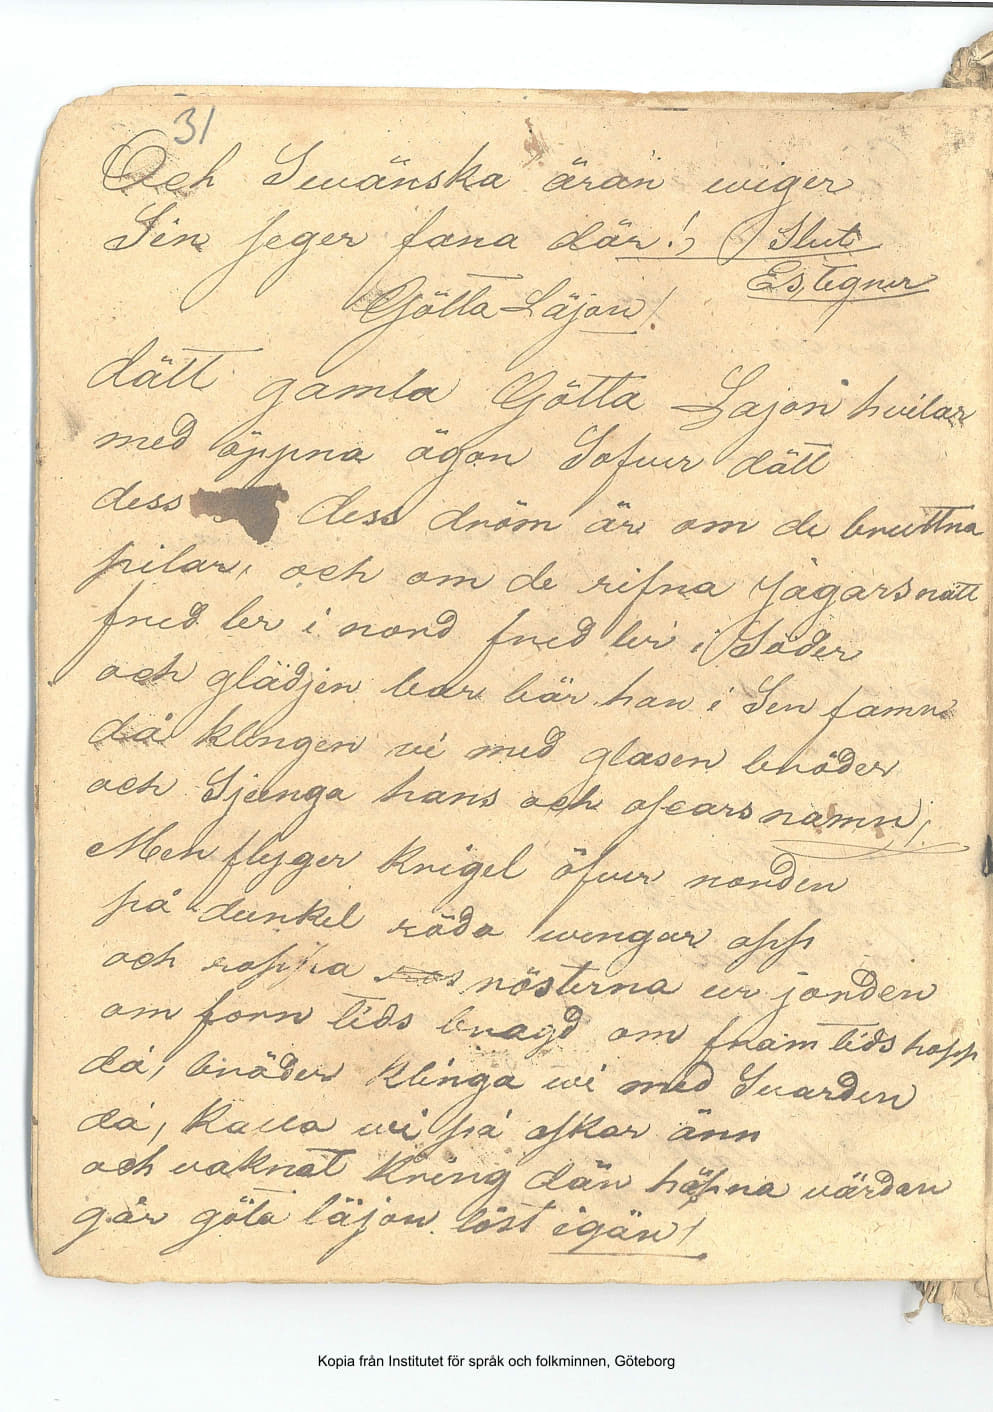 31
Och Swänska äran wiger
Sin Seger fana där!, Slut
Es, tegner
Götta Läjon!
dätt gamla Götta Lajon hvilar
med öppna ögon Sofver dätt
dess dess dröm är om de bruttna
pilar, och om de rifna Jägarsnätt
fred ler i nord fred ler i Söder
och glädjen bar bär han i Sen famn
då klingen vi med glasen bröder
och Sjunga hans och oscars namn!
Men flyger krigel öfver norden
på dunkel röda wengar opp
och roppa rös rösterna ur jorden
om forn tids bragd om främtids hopp
då, bröder klinga wi med Svärden
då, kalla wi på oskar änn
och vaknat kring dän häpna värdan
går göta läjon löst igän!
Kopia från Institutet för språk och folkminnen, Göteborg